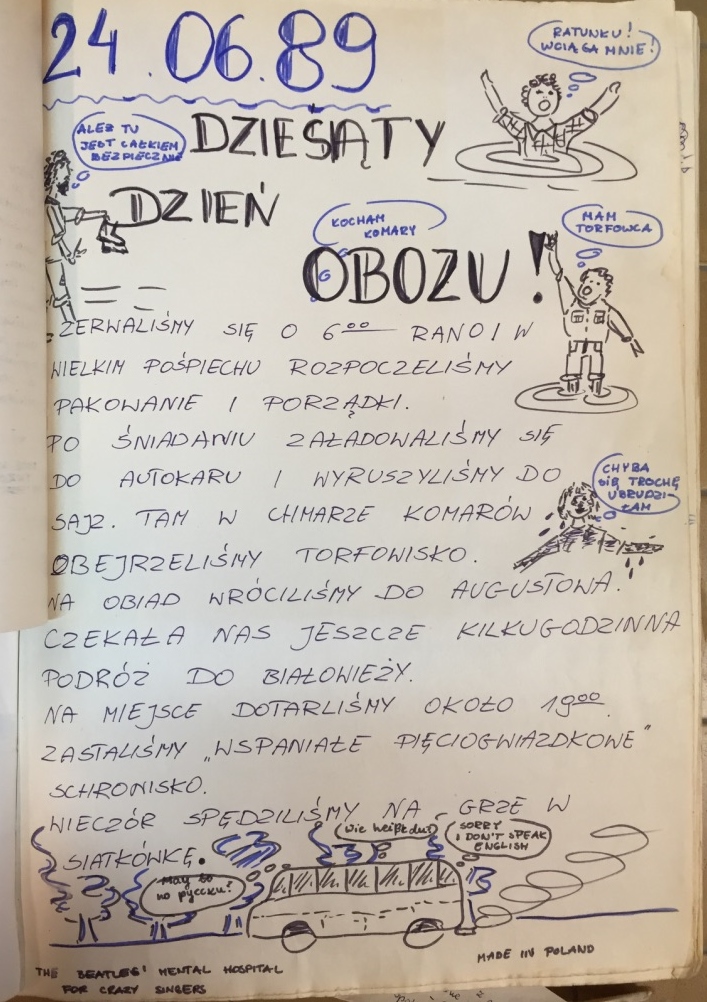 24.06.89
RATUNKU!
WCIĄGA MNIE!
ALEŻ TU
JEST CAŁKIEM
BEZPIECZNIE
DZIESIĄTY
DZIEŃ
KOCHAM
KOMARY
MAM
TORFOWCA
OBOZU!
ZERWALIŚMY SIĘ O 6⁰⁰ RANO I W
WIELKIM POŚPIECHU ROZPOCZELIŚMY
PAKOWANIE I PORZĄDKI.
PO ŚNIADANIU ZAŁADOWALIŚMY SIĘ
DO AUTOKARU I WYRUSZYLIŚMY DO
SAJZ. TAM W CHMARZE KOMARÓW
CHYBA
SIĘ TROCHĘ
UBRUDZI-
ŁAM
OBEJRZELIŚMY TORFOWISKO.
NA OBIAD WRÓCILIŚMY DO AUGUSTOWA.
CZEKAŁA NAS JESZCZE KILKUGODZINNA
PODRÓŻ DO BIAŁOWIEŻY.
NA MIEJSCE DOTARLIŚMY OKOŁO 19⁰⁰.
ZASTALIŚMY „WSPANIAŁE PIĘCIOGWIAZDKOWE"
SCHRONISKO.
WIECZÓR SPĘDZILIŚMY NA GRZE W
SIATKÓWKĘ.
Wie heißt du?
SORRY
I DON'T SPEAK
ENGLISH
по русски?
MADE IN POLAND
THE BEATLES' MENTAL HOSPITAL
FOR CRAZY SINGERS